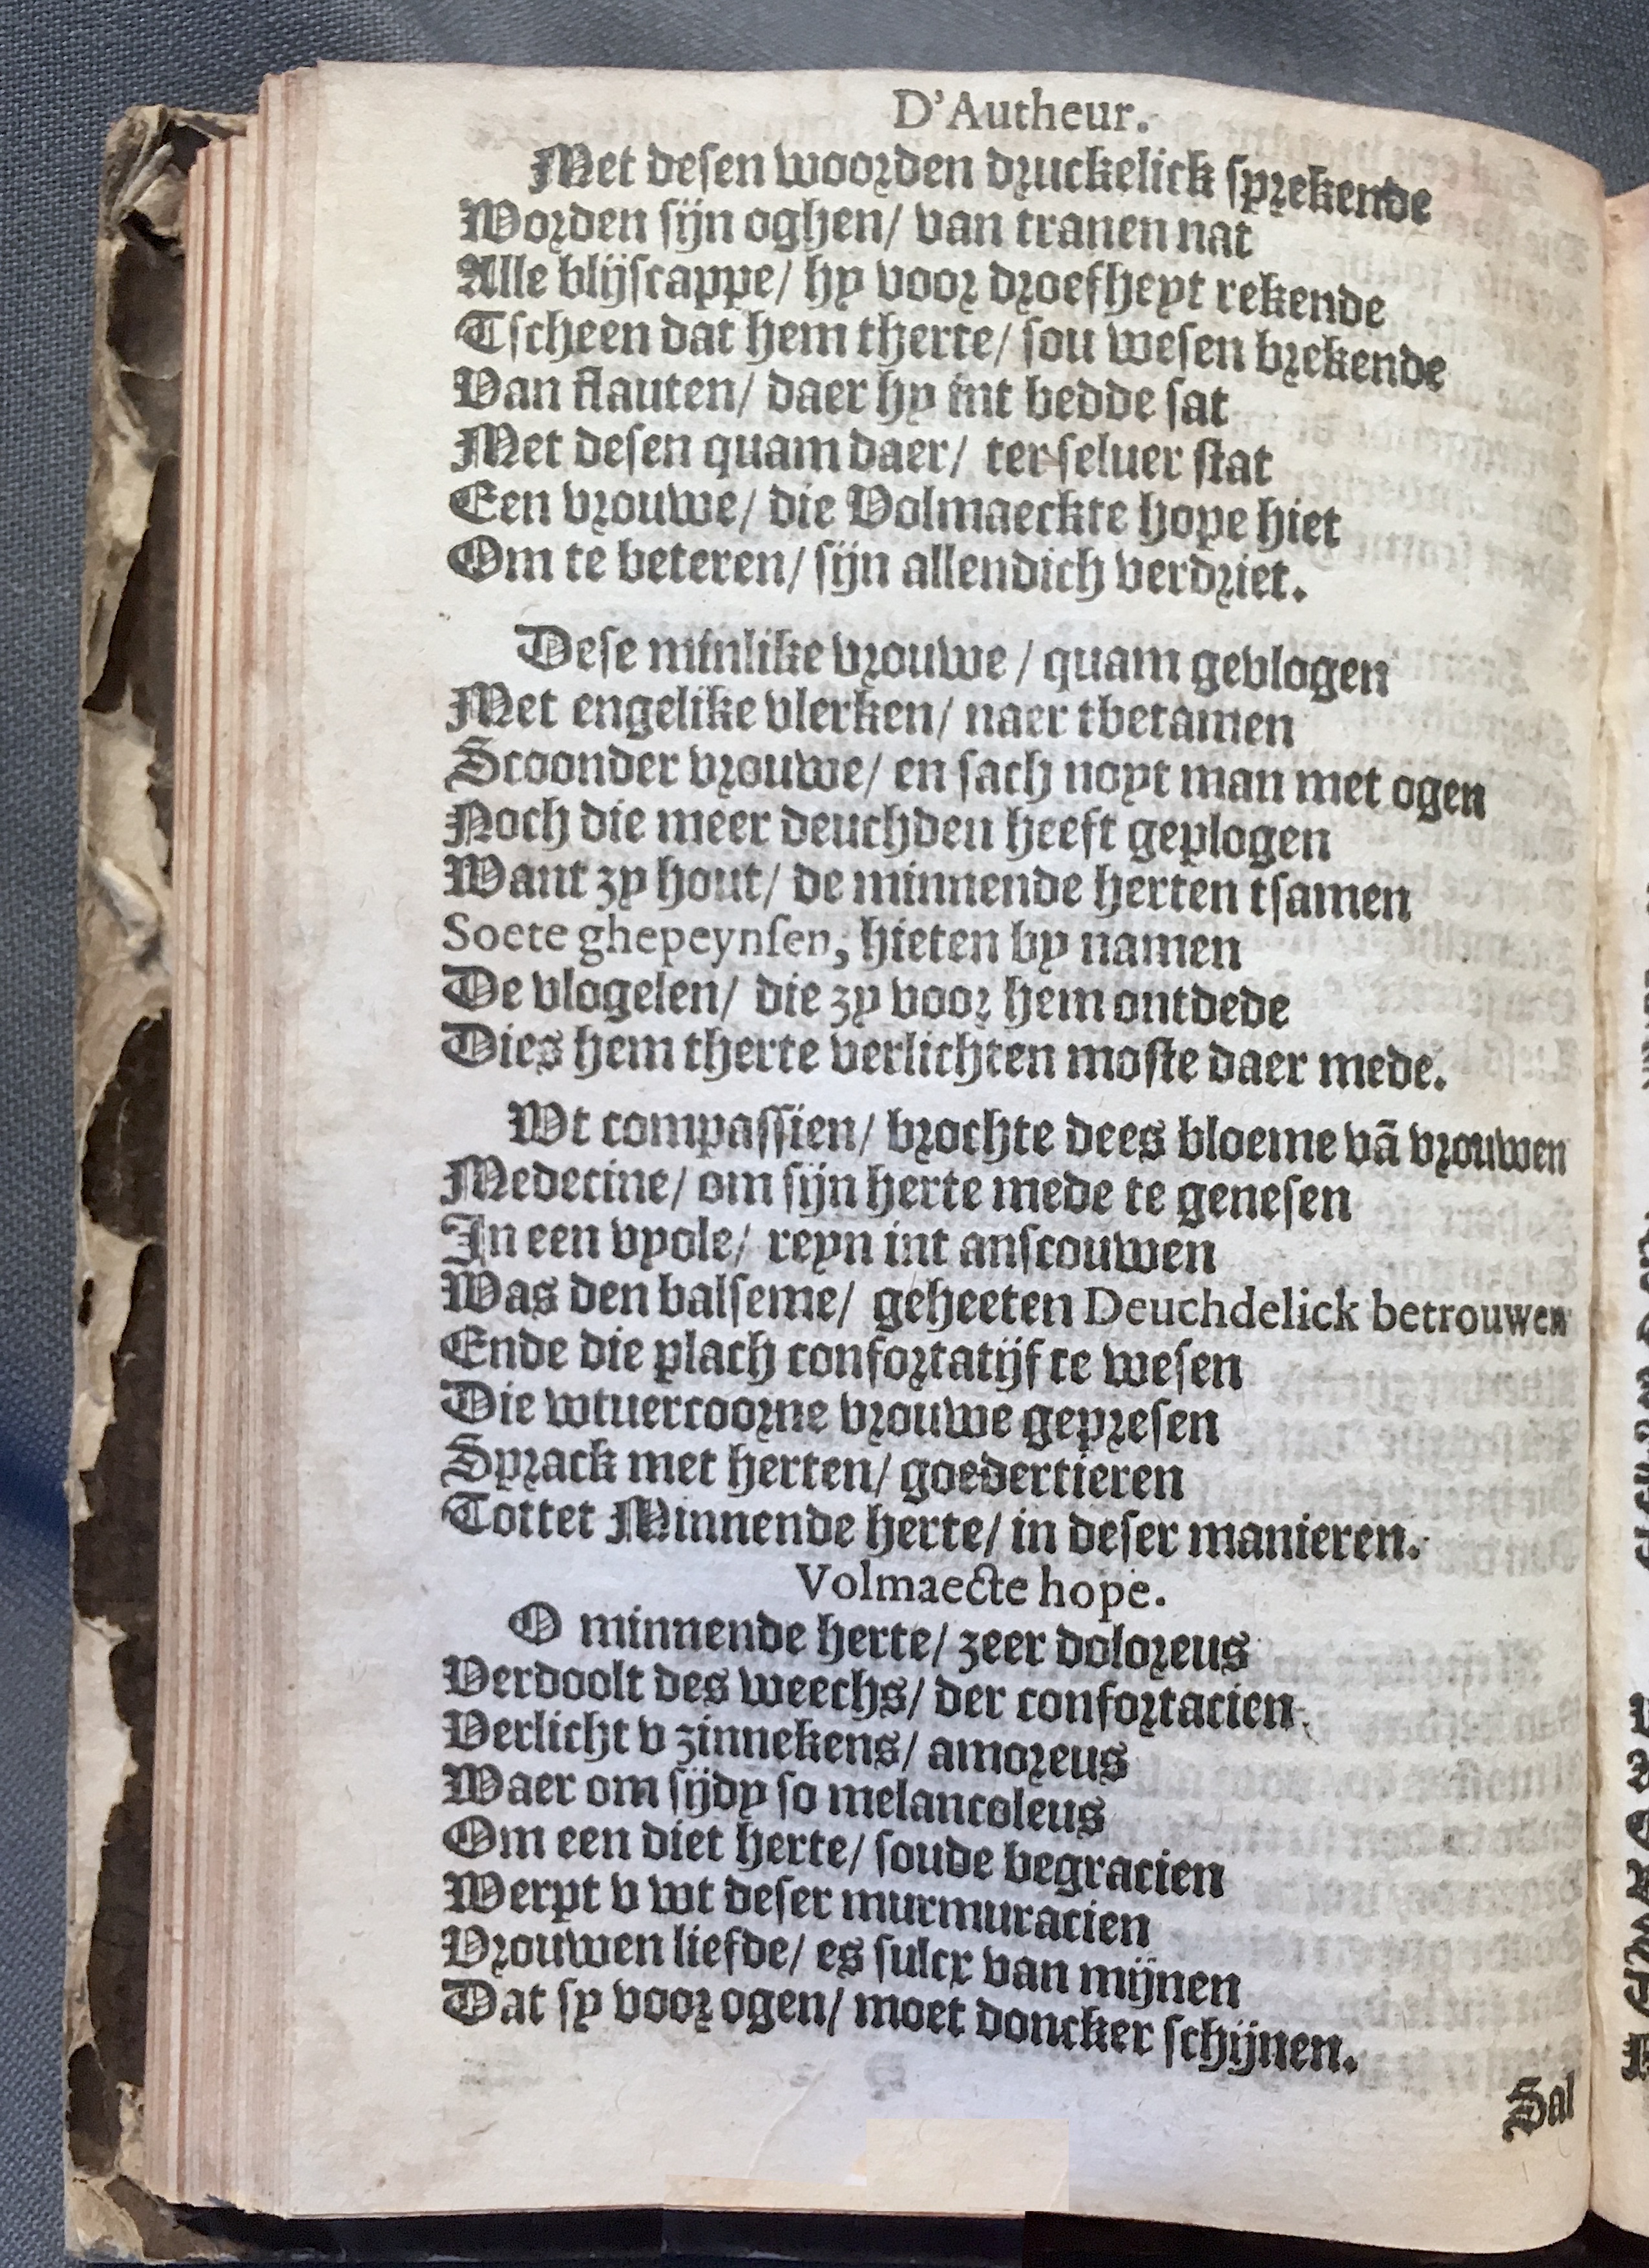 D'Autheur.
Met desen woorden druckelick sprekende
Worden sijn oghen/ van tranen nat
Alle blijscappe/ hy voor droefheyt rekende
Tscheen dat hem therte/ sou wesen brekende
Van flauten/ daer hy int bedde sat
Met desen quam daer/ ter seluer stat
Een vrouwe/ die Volmaeckte hope hiet
Om te beteren/ sijn allendich verdriet.
Dese minlike vrouwe / quam gevlogen
Met engelike vlerken/ naer tbetamen
Scoonder vrouwe/ en sach noyt man met ogen
Noch die meer deuchden heeft geplogen
Want zy hout/ de minnende herten tsamen
Soete ghepeynsen, hieten by namen
De vlogelen/ die zy voor hem ontdede
Dies hem therte verlichten moste daer mede.
Wt compassien/ brochte dees bloeme vā vrouwen
Medecine/ om sijn herte mede te genesen
In een vyole/ reyn int anscouwen
Was den balseme/ geheeten Deuchdelick betrouwen
Ende die plach confortatijf te wesen
Die wtuercoorne vrouwe gepresen
Sprack met herten/ goedertieren
Tottet Minnende herte/ in deser manieren.
Volmaecte hope.
O minnende herte/ zeer doloreus
Verdoolt des weechs/ der confortacien
Verlicht v zinnekens/ amoreus
Waer om sijdy so melancoleus
Om een diet herte/ soude begracien
Werpt v wt deser murmuracien
Vrouwen liefde/ es sulcx van mijnen
Dat sy voor ogen/ moet doncker schijnen.
Sal